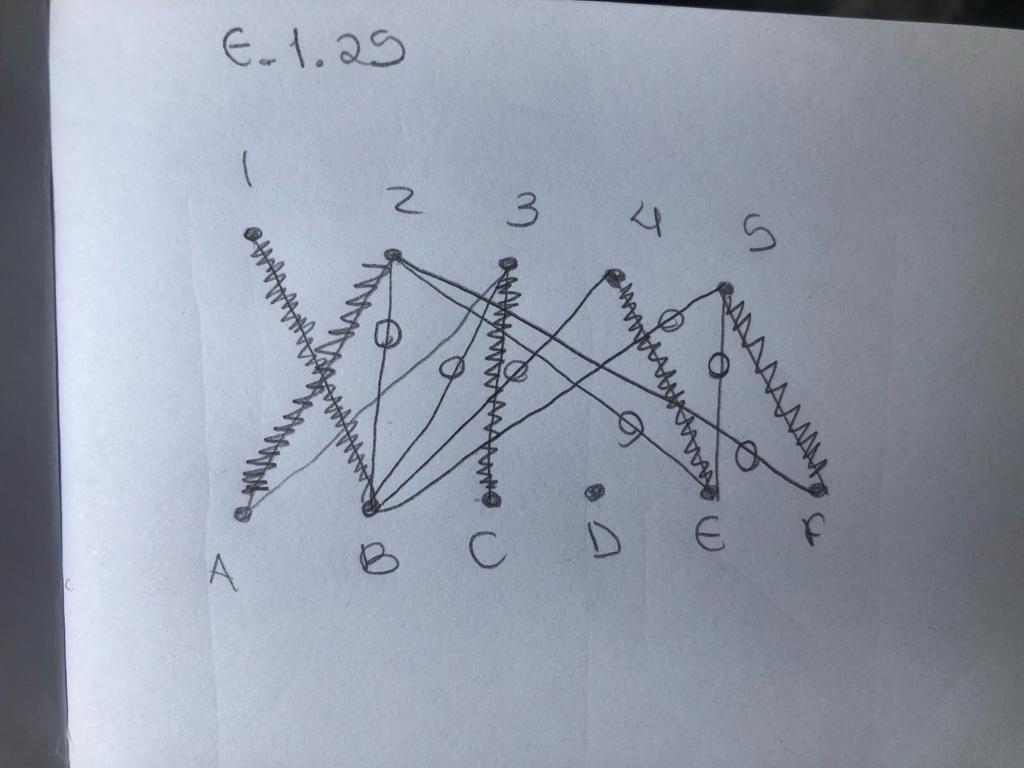 E-1.29
1 2 3 4 5
A B C D E F